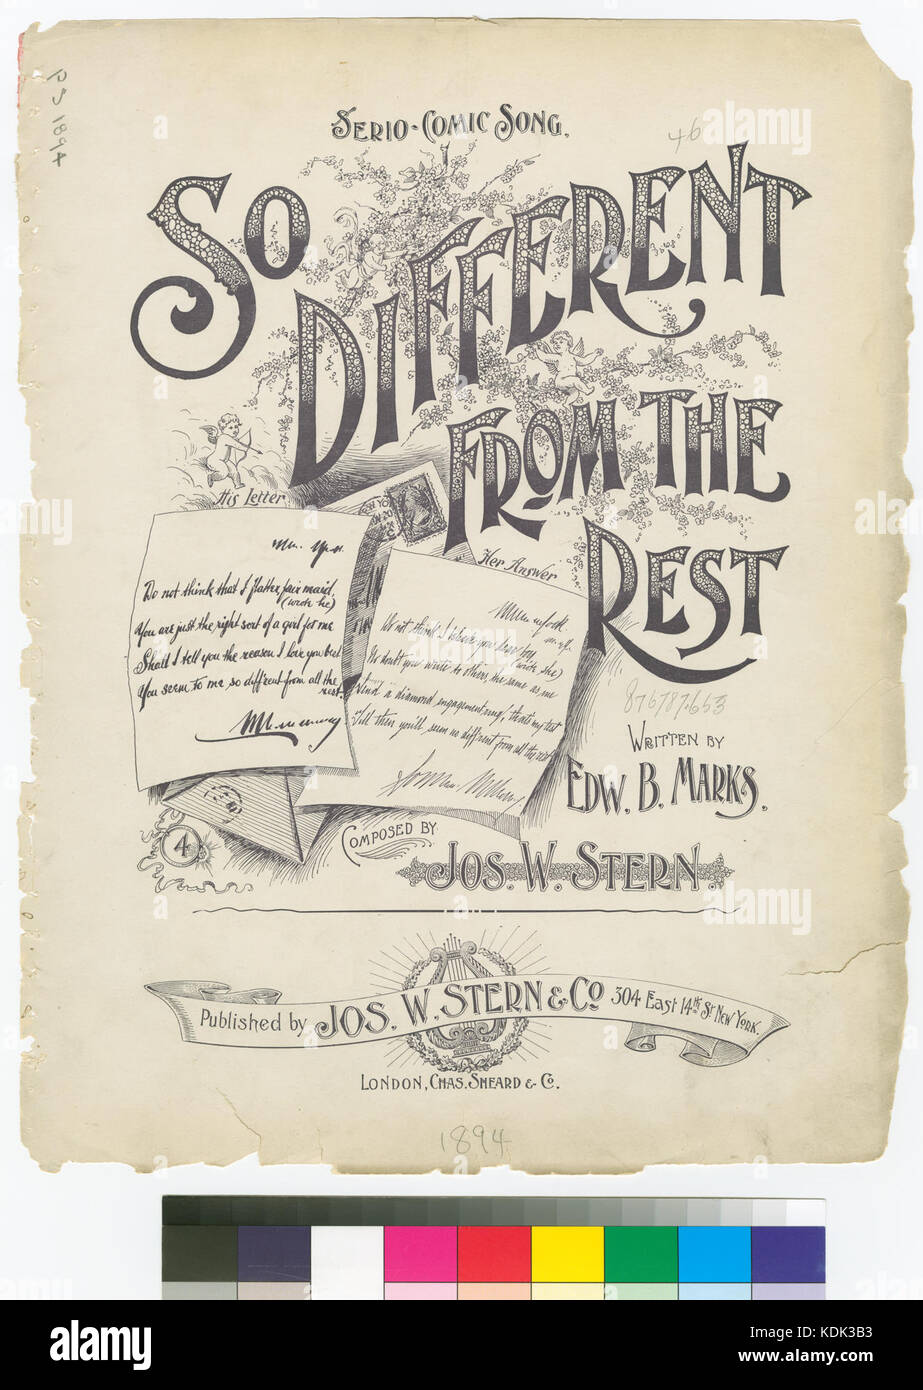 P Z 1894
SERIO-COMIC SONG.
46
SO
DIFFERENT
FROM THE
REST
His Letter
Do not think that I flatter fair maid,
(wrote he)
You are just the right sort of a girl for me
Shall I tell you the reason I love you best
You seem to me so different from all the
rest.
Her Answer
Do not think I blame you dear boy
(wrote she)
No doubt you write to others the same as me
Send a diamond engagement ring, that's my test
Till then you'll seem no different from all the rest
876787.653
WRITTEN BY
EDW. B. MARKS.
4
COMPOSED BY
JOS. W. STERN.
Published by JOS. W. STERN & CO 304 East 14th St. NEW YORK.
LONDON, CHAS. SHEARD & CO.
1894
alamy
Image ID: KDK3B3
www.alamy.com